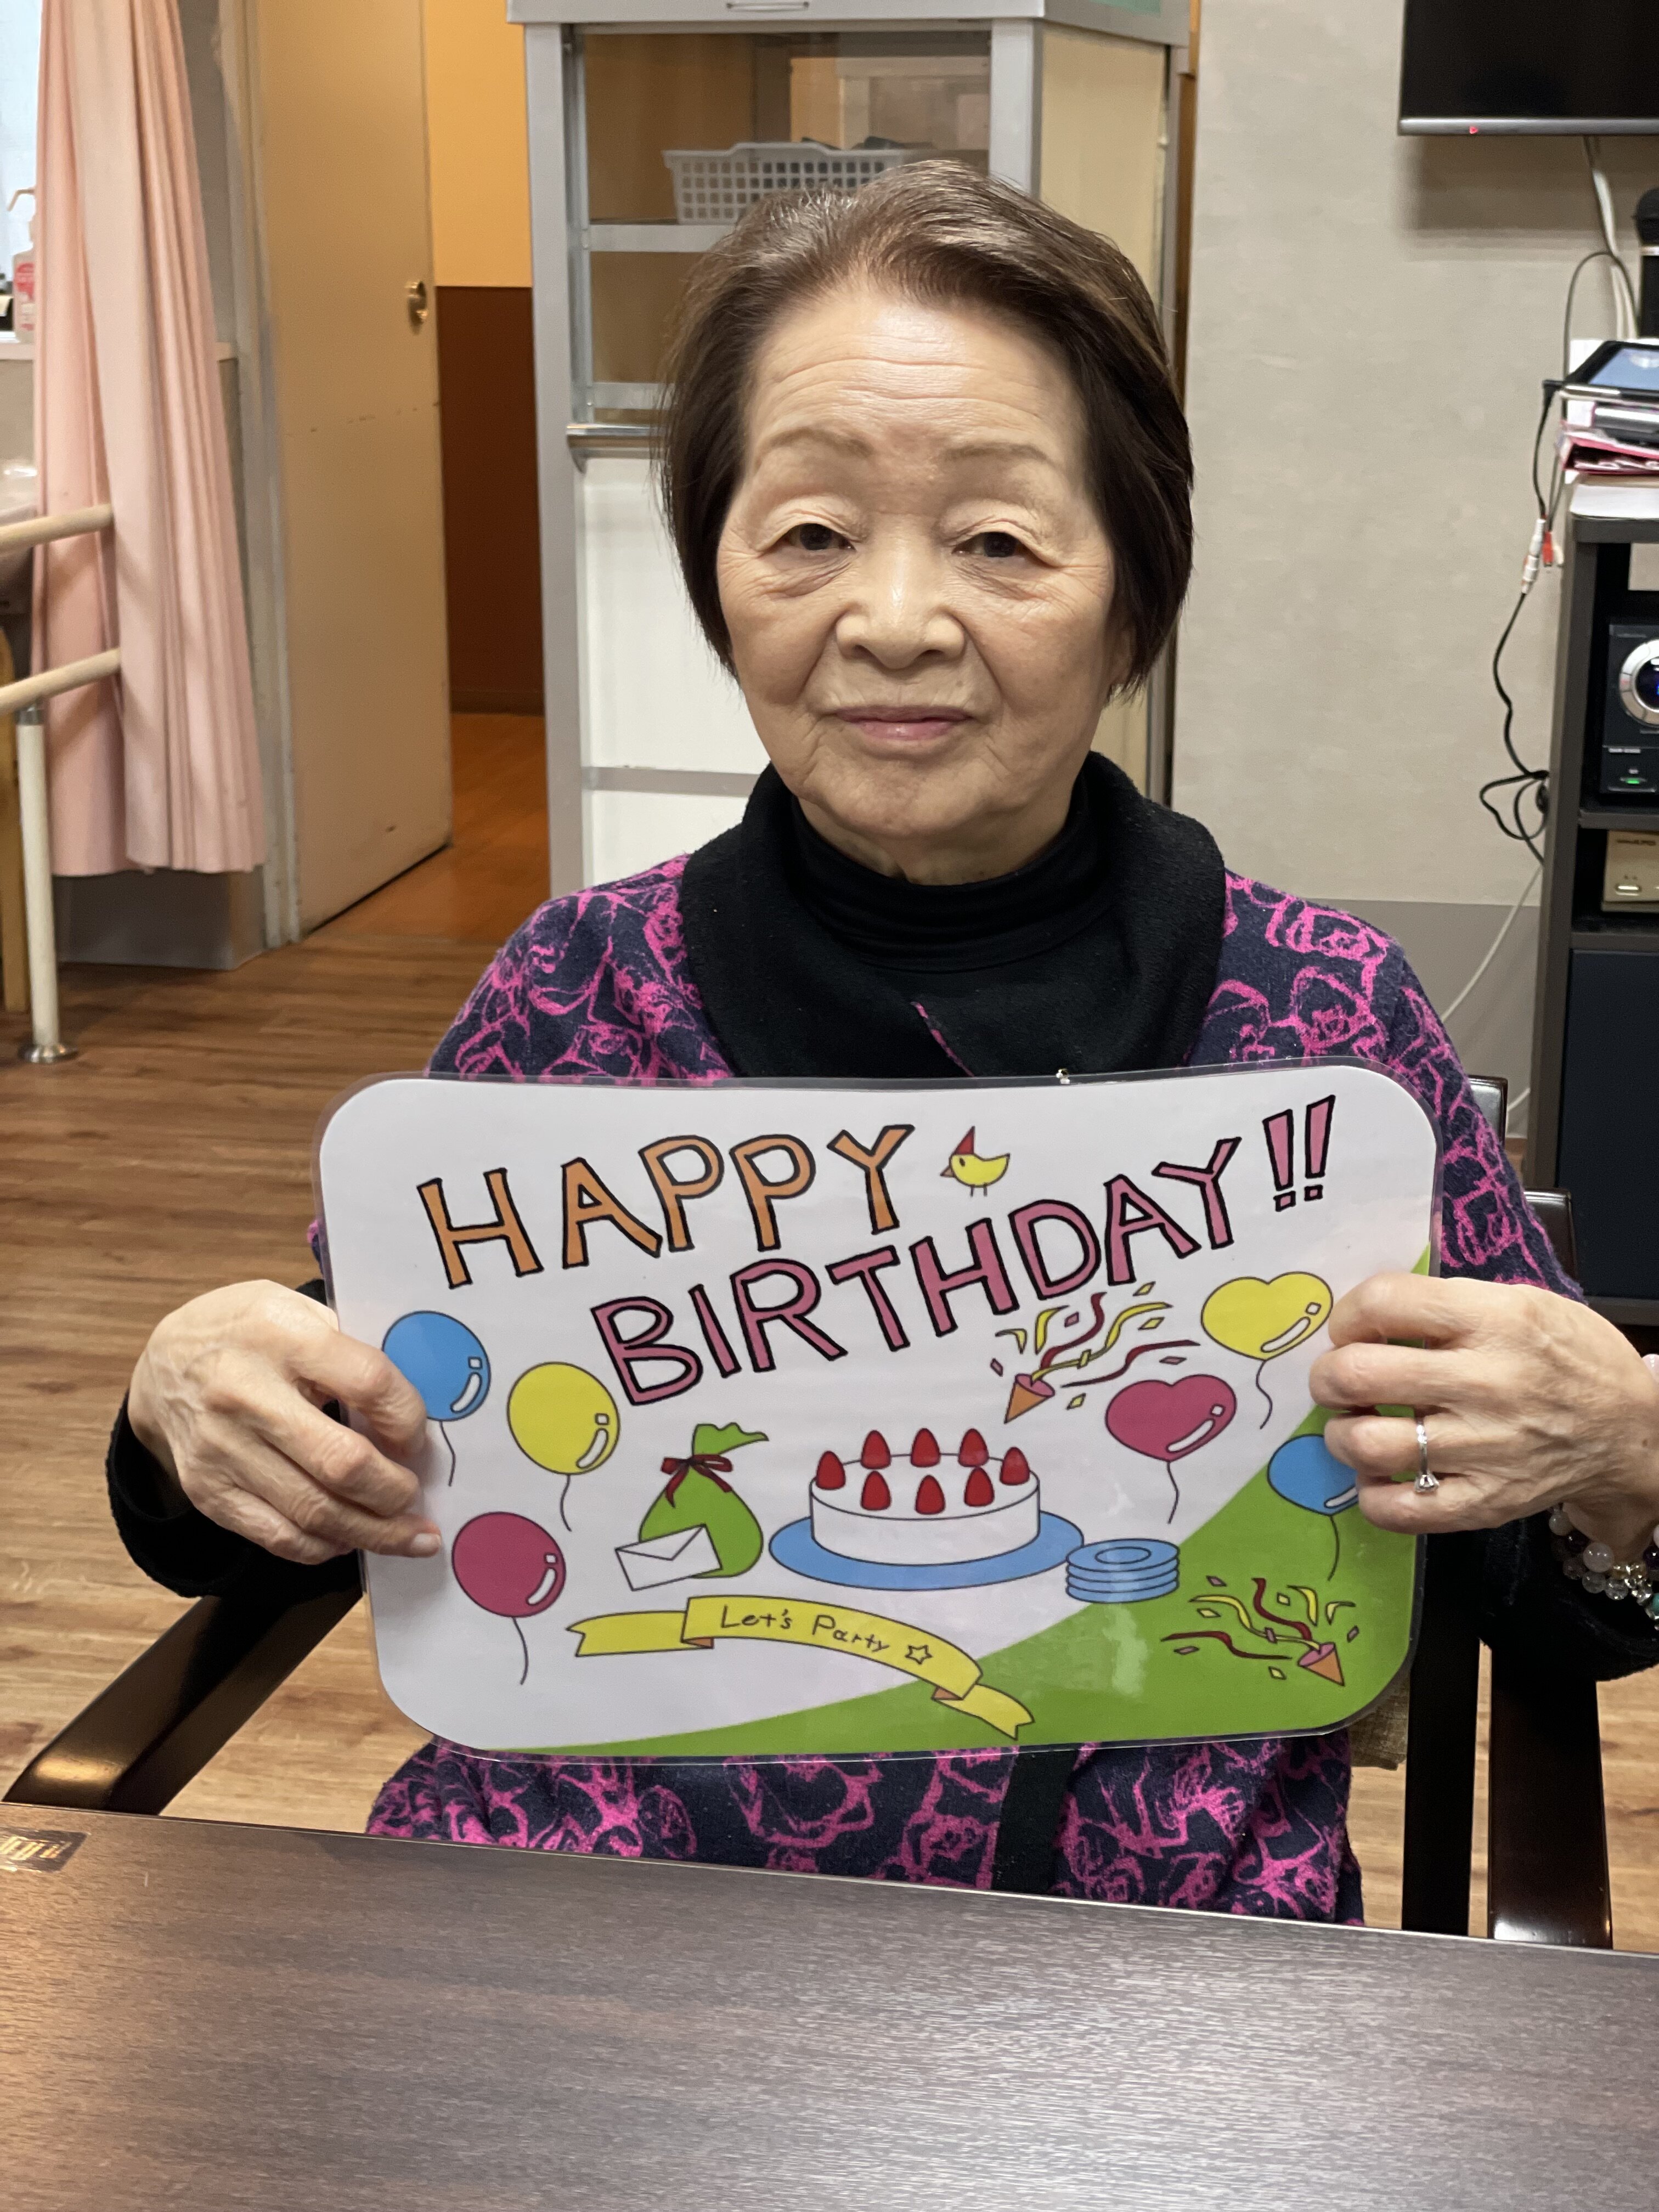 HAPPY
BIRTHDAY!!
Let's Party ☆